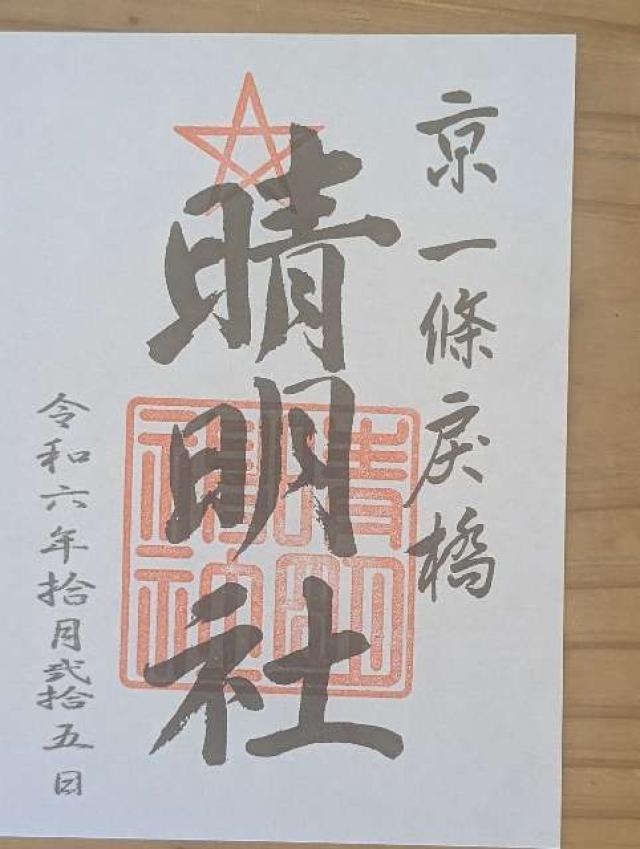 京一條戻橋
晴明社
令和六年拾月弐拾五日